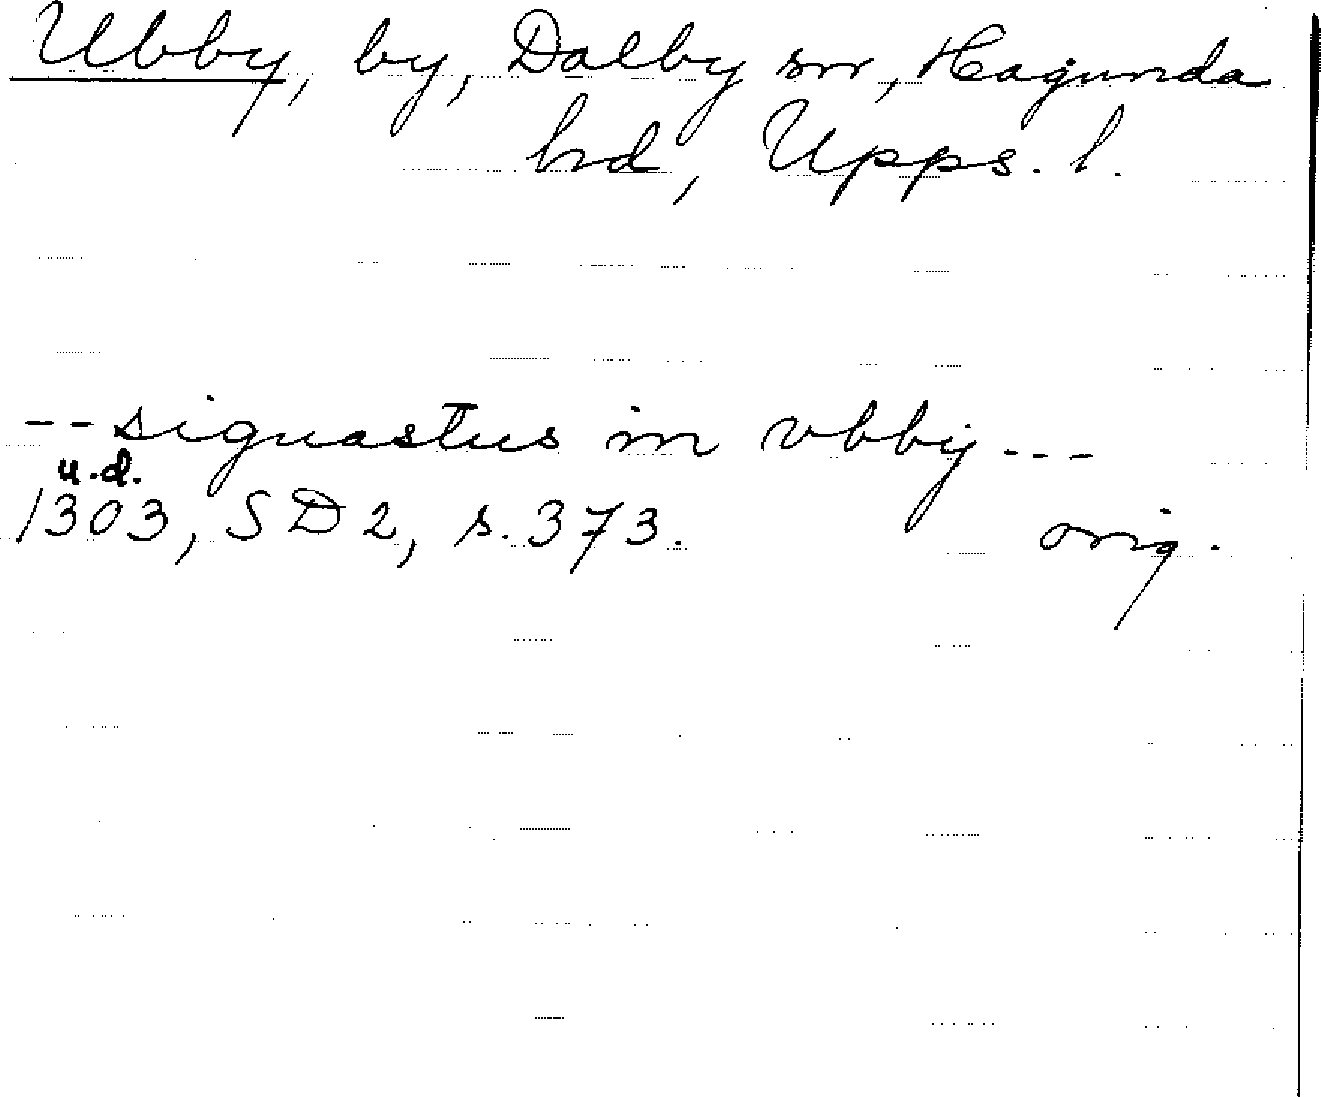 Ubby, by, Dalby sn, Hagunda
hd, Upps. l.
-- signastus in vbby ---
u.d.
1303, SD 2, s. 373. orig.